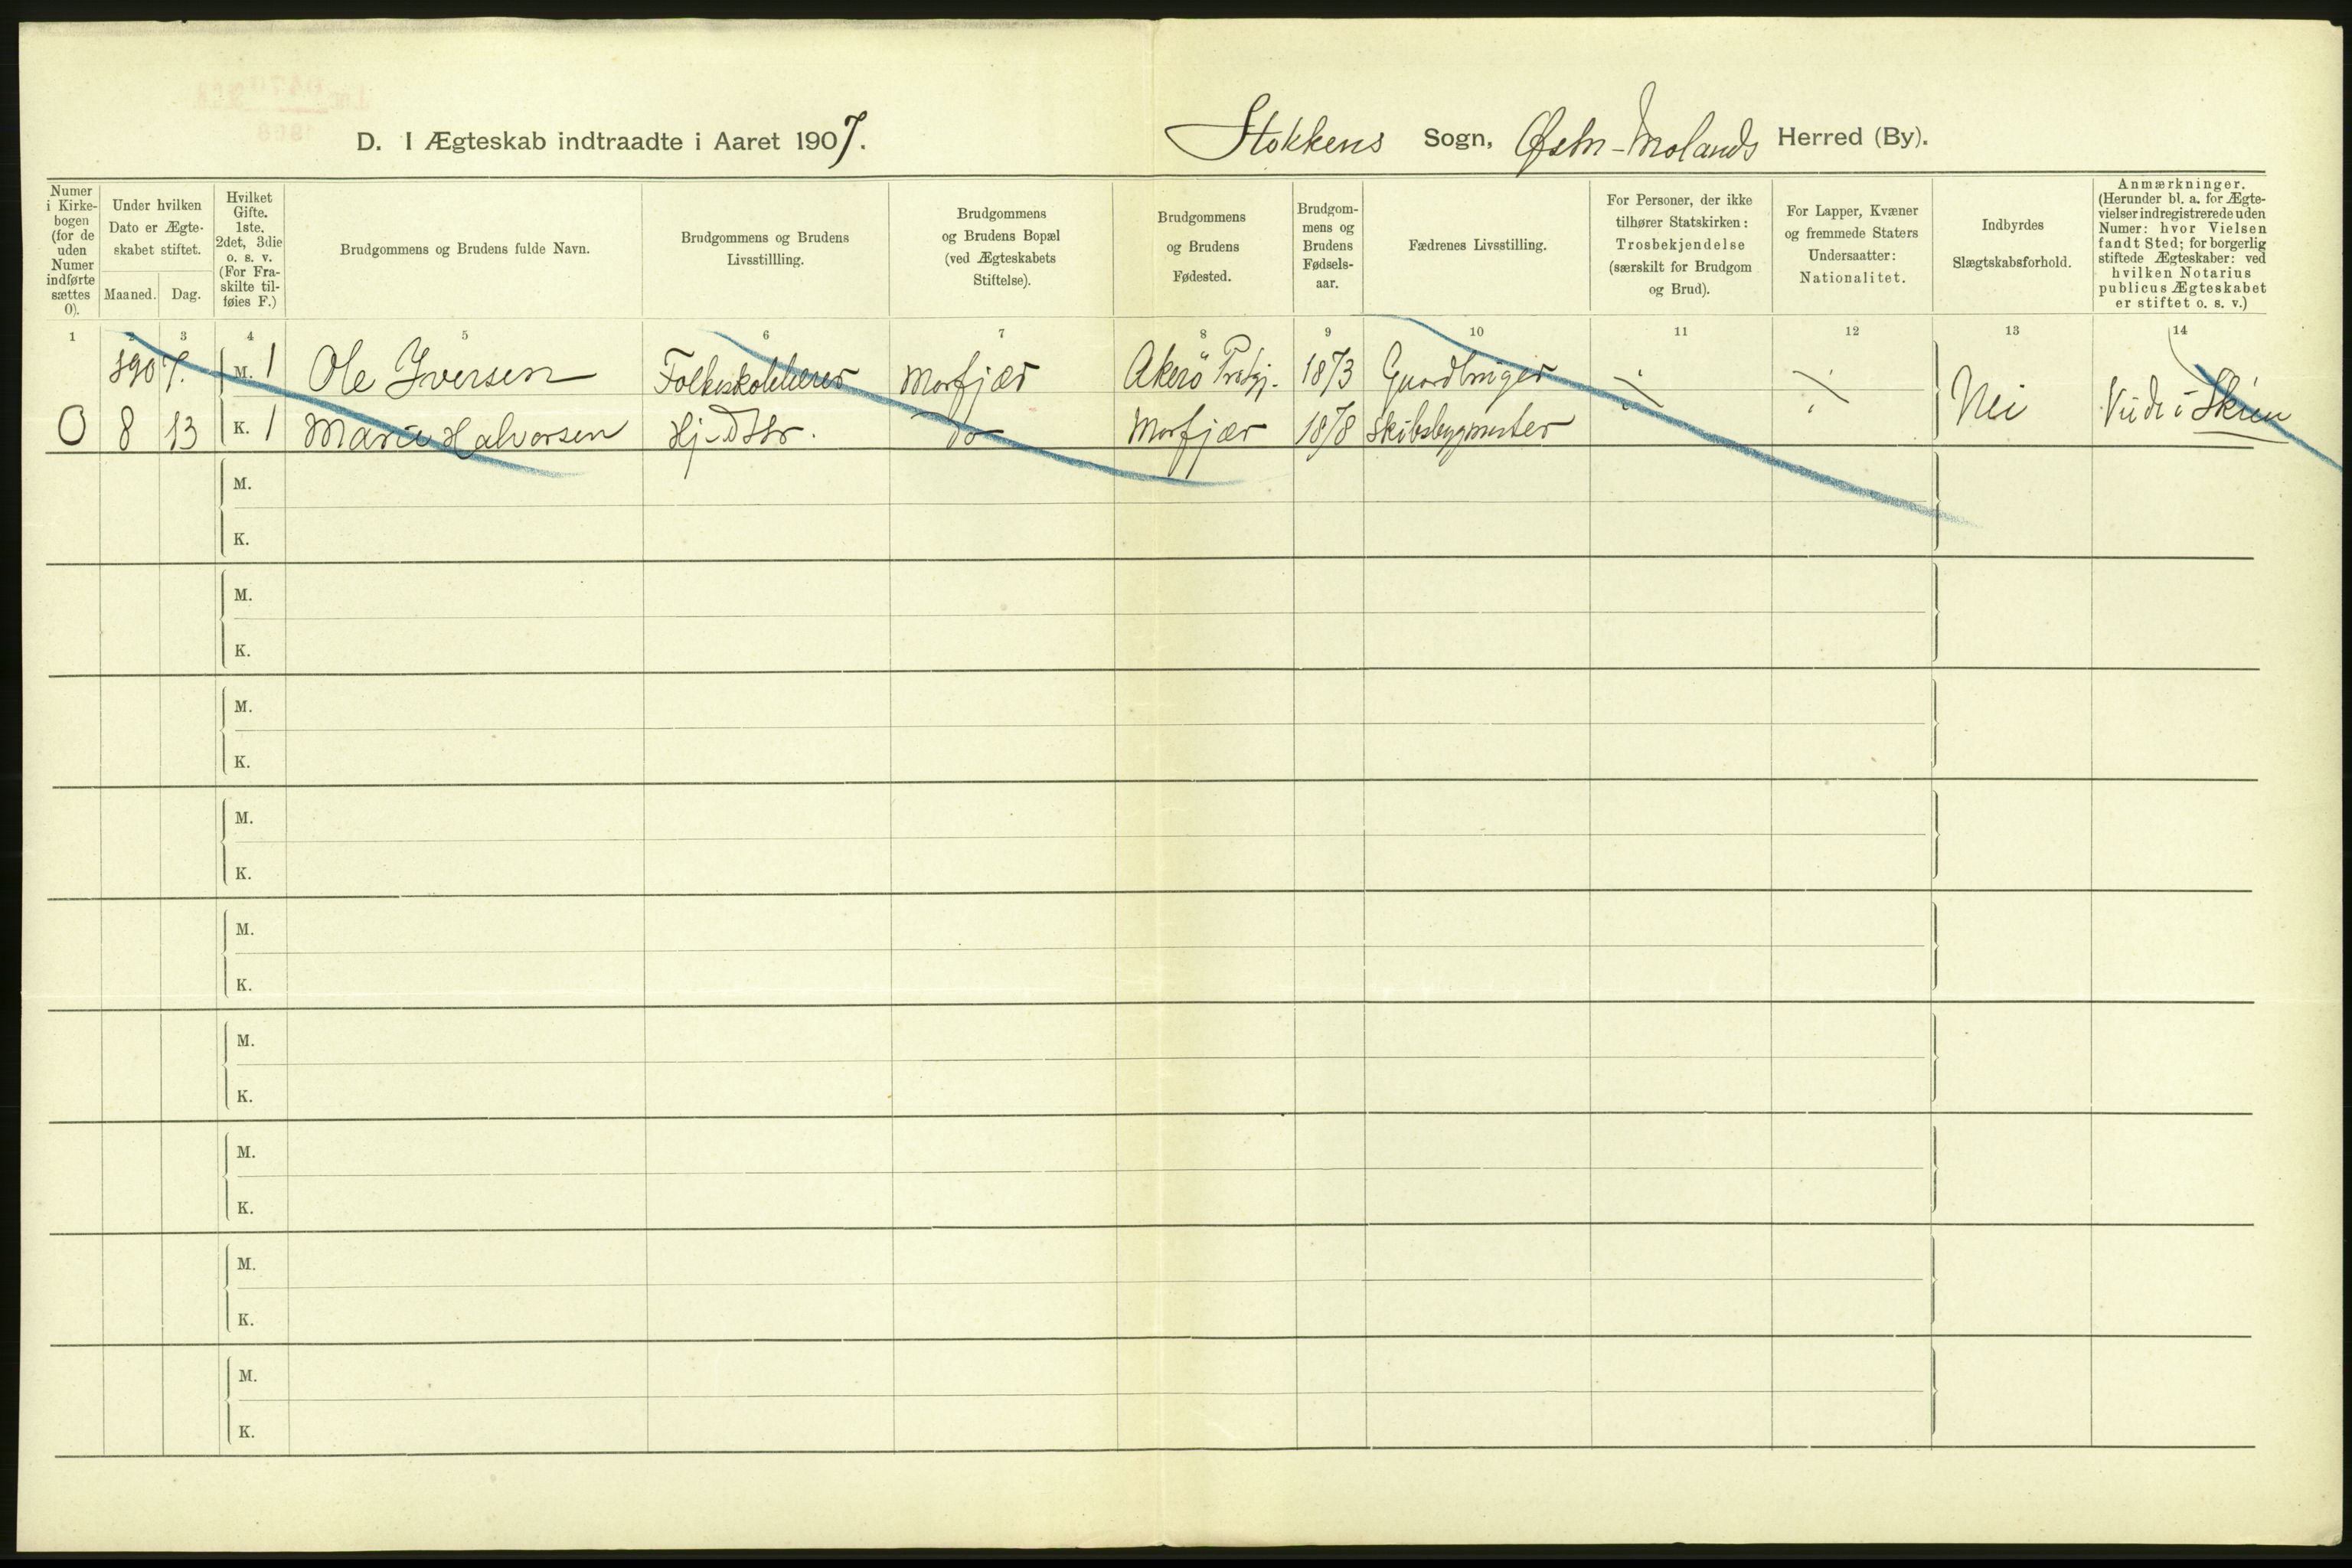 D. I Ægteskab indtraadte i Aaret 1907. Stokkens Sogn, Østre-Molands Herred (By).
Numer
i Kirke-
bogen
(for de
uden
Numer
indførte
sættes
0).
Under hvilken
Dato er Ægte-
skabet stiftet.
Maaned. Dag.
Hvilket
Gifte.
1ste,
2det, 3die
o. s. v.
(For Fra-
skilte til-
føies F.)
Brudgommens og Brudens fulde Navn.
Brudgommens og Brudens
Livsstillling.
Brudgommens
og Brudens Bopæl
(ved Ægteskabets
Stiftelse).
Brudgommens
og Brudens
Fødested.
Brudgom-
mens og
Brudens
Fødsels-
aar.
Fædrenes Livsstilling.
For Personer, der ikke
tilhører Statskirken:
Trosbekjendelse
(særskilt for Brudgom
og Brud).
For Lapper, Kvæner
og fremmede Staters
Undersaatter:
Nationalitet.
Indbyrdes
Slægtskabsforhold.
Anmærkninger.
(Herunder bl. a. for Ægte-
vielser indregistrerede uden
Numer: hvor Vielsen
fandt Sted; for borgerlig
stiftede Ægteskaber: ved
hvilken Notarius
publicus Ægteskabet
er stiftet o. s. v.)
1 2 3 4 5 6 7 8 9 10 11 12 13 14
1907. M. 1 Ole Iversen Folkeskolelærer Morfjær Akerø Prstgj. 1873 Gaardbruger
0 8 13 K. 1 Marie Halvorsen Hj-Dttr. do Morfjær 1878 Skibsbygmester Nei Viede i Skien
M.
K.
M.
K.
M.
K.
M.
K.
M.
K.
M.
K.
M.
K.
M.
K.
M.
K.